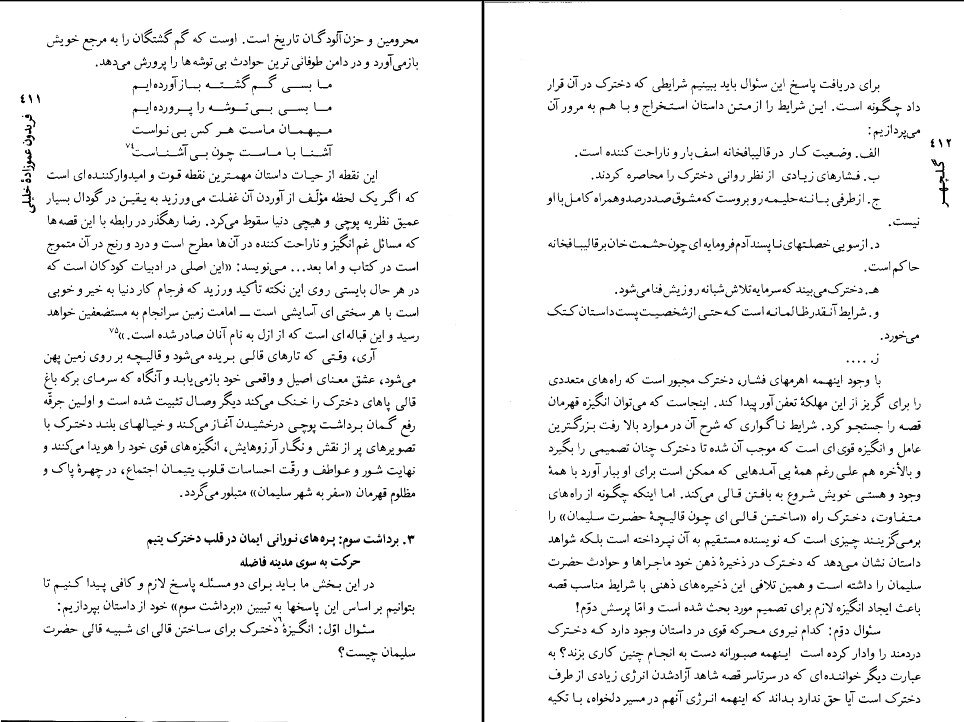 ٤١١
فریدون عموزادهٔ خلیلی
محرومین و حزن‌آلودگان تاریخ است. اوست که گم گشتگان را به مرجع خویش
بازمی‌آورد و در دامن طوفانی ترین حوادث بی توشه ها را پرورش می‌دهد.
ما بسی گم گشته باز آورده ایم
ما بسی بی توشه را پرورده ایم
میهمان ماست هر کس بی نواست
آشنا با ماست چون بی آشناست۷۴
این نقطه از حیات داستان مهمترین نقطه قوت و امیدوارکننده ای است
که اگر یک لحظه مؤلّف از آوردن آن غفلت می‌ورزید به یقین در گودال بسیار
عمیق نظریه پوچی و هیچی دنیا سقوط می‌کرد. رضا رهگذر در رابطه با این قصه‌ها
که مسائل غم‌انگیز و ناراحت کننده در آن‌ها مطرح است و درد و رنج در آن متموج
است در کتاب و اما بعد... می‌نویسد: «این اصلی در ادبیات کودکان است که
در هر حال بایستی روی این نکته تأکید ورزید که فرجام کار دنیا به خیر و خوبی
است با هر سختی ای آسایشی است ــ امامت زمین سرانجام به مستضعفین خواهد
رسید و این قباله ای است که از ازل به نام آنان صادر شده است.»۷۵
آری، وقتی که تارهای قالی بریده می‌شود و قالیچه بر روی زمین پهن
می‌شود، عشق معنای اصیل و واقعی خود بازمی‌یابد و آنگاه که سرمای برکه باغ
قالی پاهای دخترک را خنک می‌کند دیگر وصال تثبیت شده است و اولین جرقّه
رفع گمان برداشت پوچی درخشیدن آغاز می‌کند و خیالهای بلند دخترک با
تصویرهای پر از نقش و نگار آرزوهایش، انگیزه‌های قوی خود را هویدا می‌کنند و
نهایت شور و عواطف و رقّت احساسات قلوب یتیمان اجتماع، در چهرهٔ پاک و
مظلوم قهرمان «سفر به شهر سلیمان» متبلور می‌گردد.
۳. برداشت سوم: پره‌های نورانی ایمان در قلب دخترک یتیم
حرکت به سوی مدینه فاضله
در این بخش ما باید برای دو مسئله پاسخ لازم و کافی پیدا کنیم تا
بتوانیم بر اساس این پاسخها به تبیین «برداشت سوم» خود از داستان بپردازیم:
سئوال اوّل: انگیزهٔ۷۶ دخترک برای ساختن قالی ای شبیه قالی حضرت
سلیمان چیست؟
٤١٢
گلچهر
برای دریافت پاسخ این سئوال باید ببینیم شرایطی که دخترک در آن قرار
داد چگونه است. این شرایط را از متن داستان استخراج و با هم به مرور آن
می‌پردازیم:
الف. وضعیت کار در قالیبافخانه اسف‌بار و ناراحت کننده است.
ب. فشارهای زیادی از نظر روانی دخترک را محاصره کردند.
ج. از طرفی با ننه حلیمه روبروست که مشوق صددرصد و همراه کامل با او
نیست.
د. از سویی خصلتهای ناپسند آدم فرومایه ای چون حشمت خان بر قالیبافخانه
حاکم است.
هـ. دخترک می‌بیند که سرمایه تلاش شبانه روزیش فنا می‌شود.
و. شرایط آنقدر ظالمانه است که حتی از شخصیت پست داستان کتک
می‌خورد.
ز. ....
با وجود اینهمه اهرمهای فشار، دخترک مجبور است که راه‌های متعددی
را برای گریز از این مهلکهٔ تعفن آور پیدا کند. اینجاست که می‌توان انگیزه قهرمان
قصه را جستجو کرد. شرایط ناگواری که شرح آن در موارد بالا رفت بزرگترین
عامل و انگیزه قوی ای است که موجب آن شده تا دخترک چنان تصمیمی را بگیرد
و بالأخره هم علی رغم همهٔ پی آمدهایی که ممکن است برای او ببار آورد با همهٔ
وجود و هستی خویش شروع به بافتن قالی می‌کند. اما اینکه چگونه از راه‌های
متفاوت، دخترک راه «ساختن قالی ای چون قالیچهٔ حضرت سلیمان» را
برمی‌گزیند چیزی است که نویسنده مستقیم به آن نپرداخته است بلکه شواهد
داستان نشان می‌دهد که دخترک در ذخیرهٔ ذهن خود ماجراها و حوادث حضرت
سلیمان را داشته است و همین تلافی این ذخیره‌های ذهنی با شرایط مناسب قصه
باعث ایجاد انگیزه لازم برای تصمیم مورد بحث شده است و امّا پرسش دوّم!
سئوال دوّم: کدام نیروی محرکه قوی در داستان وجود دارد که دخترک
دردمند را وادار کرده است اینهمه صبورانه دست به انجام چنین کاری بزند؟ به
عبارت دیگر خواننده‌ای که در سرتاسر قصه شاهد آزادشدن انرژی زیادی از طرف
دخترک است آیا حق ندارد بداند که اینهمه انرژی آنهم در مسیر دلخواه، با تکیه